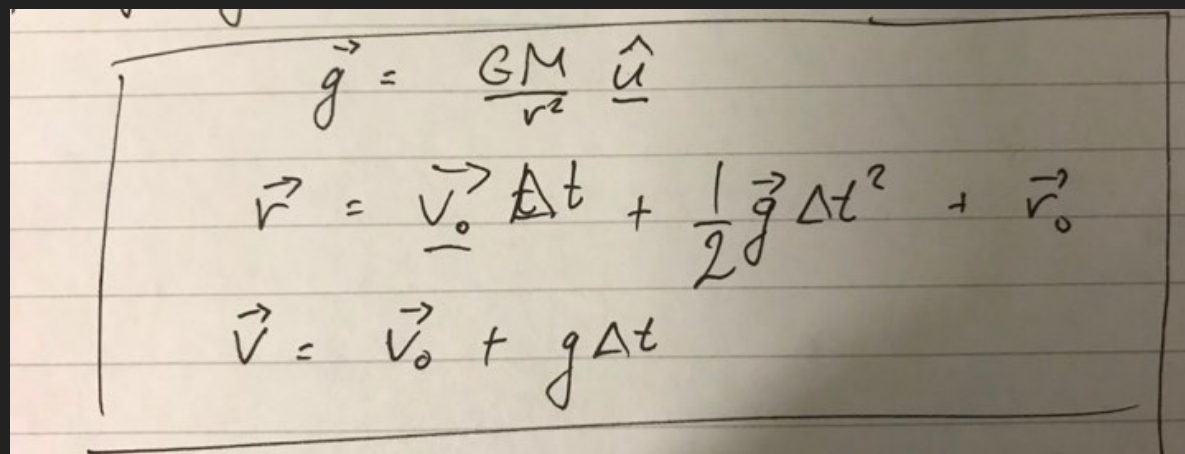 g⃗ = GM/r² û
r⃗ = v⃗₀ Δt + 1/2 g⃗ Δt² + r⃗₀
v⃗ = v⃗₀ + g Δt